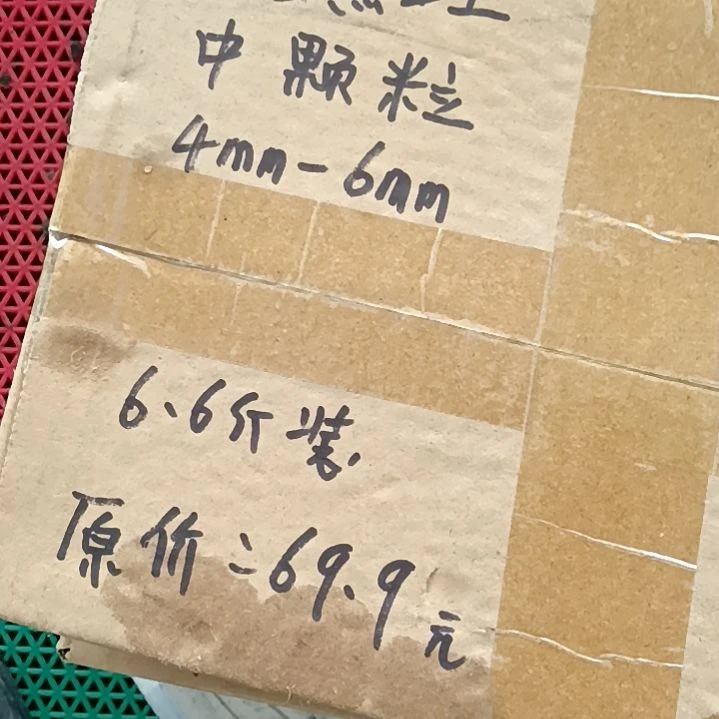 中颗粒
4mm-6mm
6.6斤装.
原价:69.9元